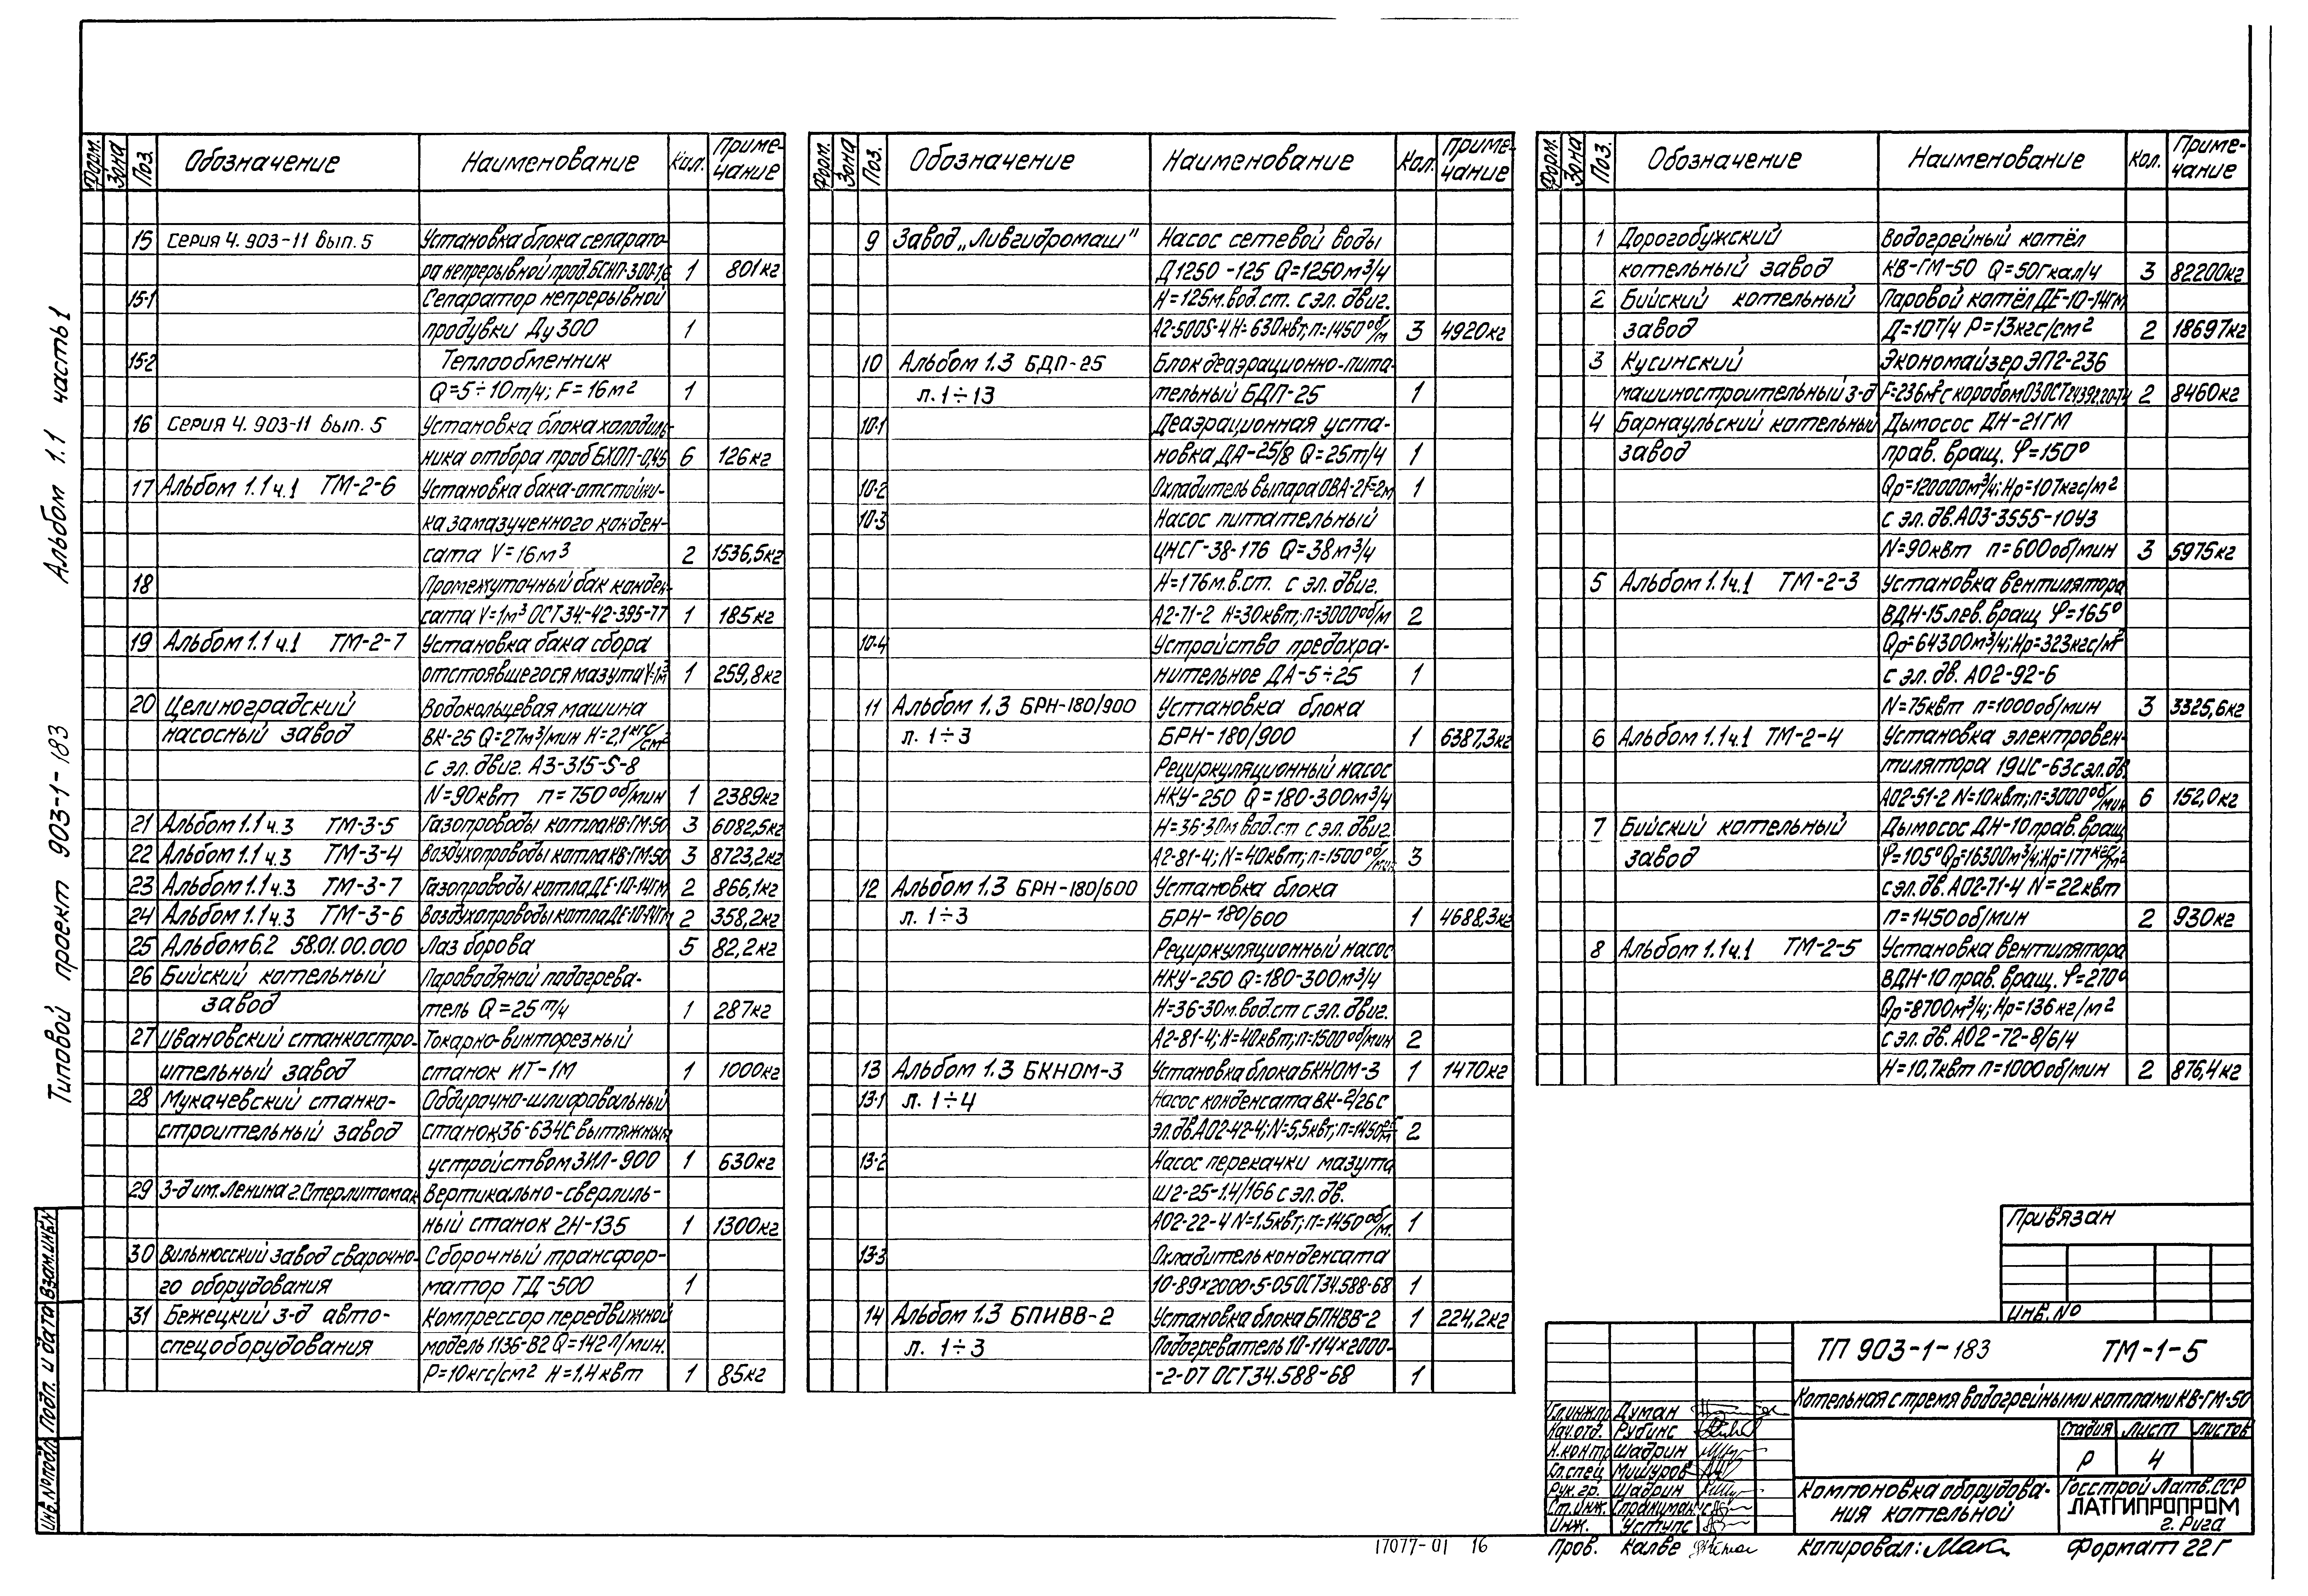 Альбом 1.1 часть 1
Типовой проект 903-1-183
Форм. Зона Поз. Обозначение Наименование Кол. Приме-
чание
15 Серия 4.903-11 вып. 5 Установка блока сепарато-
ра непрерывной прод. БСНП-300-1,6 1 801кг
15-1 Сепаратор непрерывной
продувки Ду 300 1
15-2 Теплообменник
Q=5÷10т/ч; F=16м2 1
16 Серия 4.903-11 вып. 5 Установка блока холодиль-
ника отбора проб БХОП-0,45 6 126кг
17 Альбом 1.1 ч.1 ТМ-2-6 Установка бака-отстойни-
ка замазученного конден-
сата V=16м3 2 1536,5кг
18 Промежуточный бак конден-
сата V=1м3 ОСТ 34-42-395-77 1 185кг
19 Альбом 1.1 ч.1 ТМ-2-7 Установка бака сбора
отстоявшегося мазута V=1м3 1 259,8кг
20 Целиноградский Водокольцевая машина
насосный завод ВК-25 Q=27м3/мин Н=2,1кгс/см2
с эл. двиг. А3-315-S-8
N=90квт п=750об/мин 1 2389кг
21 Альбом 1.1 ч.3 ТМ-3-5 Газопроводы котла КВ-ГМ-50 3 6082,5кг
22 Альбом 1.1 ч.3 ТМ-3-4 Воздухопроводы котла КВ-ГМ-50 3 8723,2кг
23 Альбом 1.1 ч.3 ТМ-3-7 Газопроводы котла ДЕ-10-14ГМ 2 866,1кг
24 Альбом 1.1 ч.3 ТМ-3-6 Воздухопроводы котла ДЕ-10-14ГМ 2 358,2кг
25 Альбом 6.2 58.01.00.000 Лаз борова 5 82,2кг
26 Бийский котельный Пароводяной подогрева-
завод тель Q=25т/ч 1 287кг
27 Ивановский станкостро- Токарно-винторезный
ительный завод станок ИТ-1М 1 1000кг
28 Мукачевский станко- Обдирочно-шлифовальный
строительный завод станок 3Б-634 с вытяжным
устройством ЗИЛ-900 1 630кг
29 З-д им. Ленина г. Стерлитомак Вертикально-сверлиль-
ный станок 2Н-135 1 1300кг
30 Вильнюсский завод сварочно- Сборочный трансфор-
го оборудования матор ТД-500 1
31 Бежецкий з-д авто- Компрессор передвижной
спецоборудования модель 1136-В2 Q=142л/мин.
Р=10кгс/см2 Н=1,4квт 1 85кг
Форм. Зона Поз. Обозначение Наименование Кол. Приме-
чание
9 Завод „Ливгидромаш" Насос сетевой воды
Д1250-125 Q=1250м3/ч
Н=125м.вод.ст. с эл. двиг.
А2-500S-4 Н=630квт; п=1450об/м 3 4920кг
10 Альбом 1.3 БДП-25 Блок деаэрационно-пита-
л. 1÷13 тельный БДП-25 1
10-1 Деаэрационная уста-
новка ДА-25/8 Q=25т/ч 1
10-2 Охладитель выпара ОВА-2 F=2м 1
10-3 Насос питательный
ЦНСГ-38-176 Q=38м3/ч
Н=176м.в.ст. с эл. двиг.
А2-71-2 Н=30квт; п=3000об/м 2
10-4 Устройство предохра-
нительное ДА-5÷25 1
11 Альбом 1.3 БРН-180/900 Установка блока
л. 1÷3 БРН-180/900 1 6387,3кг
Рециркуляционный насос
НКУ-250 Q=180-300м3/ч
Н=36-30м вод.ст с эл. двиг.
А2-81-4; N=40квт; п=1500об/мин 3
12 Альбом 1.3 БРН-180/600 Установка блока
л. 1÷3 БРН-180/600 1 4688,3кг
Рециркуляционный насос
НКУ-250 Q=180-300м3/ч
Н=36-30м.вод.ст с эл. двиг.
А2-81-4; Н=40квт; п=1500об/мин 2
13 Альбом 1.3 БКНОМ-3 Установка блока БКНОМ-3 1 1470кг
13-1 л. 1÷4 Насос конденсата ВК-2/26 с
эл. дв А02-42-4; N=5,5квт; п=1450об/м 2
13-2 Насос перекачки мазута
Ш2-25-1,4/16б с эл. дв.
А02-22-4 N=1.5квт; п=1450об/м. 1
13-3 Охладитель конденсата
10-89×2000-5-05 ОСТ34.588-68 1
14 Альбом 1.3 БПИВВ-2 Установка блока БПИВВ-2 1 224,2кг
л. 1÷3 Подогреватель 10-114×2000-
-2-07 ОСТ34.588-68 1
Форм. Зона Поз. Обозначение Наименование Кол. Приме-
чание
1 Дорогобужский Водогрейный котёл
котельный завод КВ-ГМ-50 Q=50Гкал/ч 3 82200кг
2 Бийский котельный Паровой котёл ДЕ-10-14ГМ
завод Д=10т/ч Р=13кгс/см2 2 18697кг
3 Кусинский Экономайзер ЭП2-236
машиностроительный з-д F=236м2 с коробом 03 ОСТ 2439220-74 2 8460кг
4 Барнаульский котельный Дымосос ДН-21ГМ
завод прав. вращ. φ=150°
Qр=120000м3/ч; Нр=107кгс/м2
с эл. дв. А03-355S-10У3
N=90квт п=600об/мин 3 5975кг
5 Альбом 1.1ч.1 ТМ-2-3 Установка вентилятора
ВДН-15 лев. вращ φ=165°
Qр=64300м3/ч; Нр=323кгс/м2
с эл. дв. А02-92-6
N=75квт п=1000об/мин 3 3325,6кг
6 Альбом 1.1ч.1 ТМ-2-4 Установка электровен-
тилятора 19ЦС-63 с эл. дв.
А02-51-2 N=10квт; п=3000об/мин 6 152,0кг
7 Бийский котельный Дымосос ДН-10 прав. вращ
завод φ=105° Qр=16300м3/ч; Нр=177кгс/м2
с эл. дв. А02-71-4 N=22квт
п=1450об/мин 2 930кг
8 Альбом 1.1ч.1 ТМ-2-5 Установка вентилятора
ВДН-10 прав. вращ. φ=270°
Qр=8700м3/ч; Нр=136кг/м2
с эл. дв. А02-72-8/6/4
Н=10,7квт п=1000об/мин 2 876,4кг
Привязан
Инв. №
ТП 903-1-183 ТМ-1-5
Котельная с тремя водогрейными котлами КВ-ГМ-50
Гл.инж.пр Думан
Нач.отд. Рубинс
Н.контр Шадрин
Гл.спец Мишуров
Рук.гр. Шадрин
Ст.инж.
Инж. Уступс
Пров. Калве
Стадия Лист Листов
Р 4
Компоновка оборудова-
ния котельной
Госстрой Латв.ССР
ЛАТГИПРОПРОМ
г. Рига
17077-01 16
Копировал: Формат 22Г
Инв.№ подл. Подп. и дата Взам.инв.№